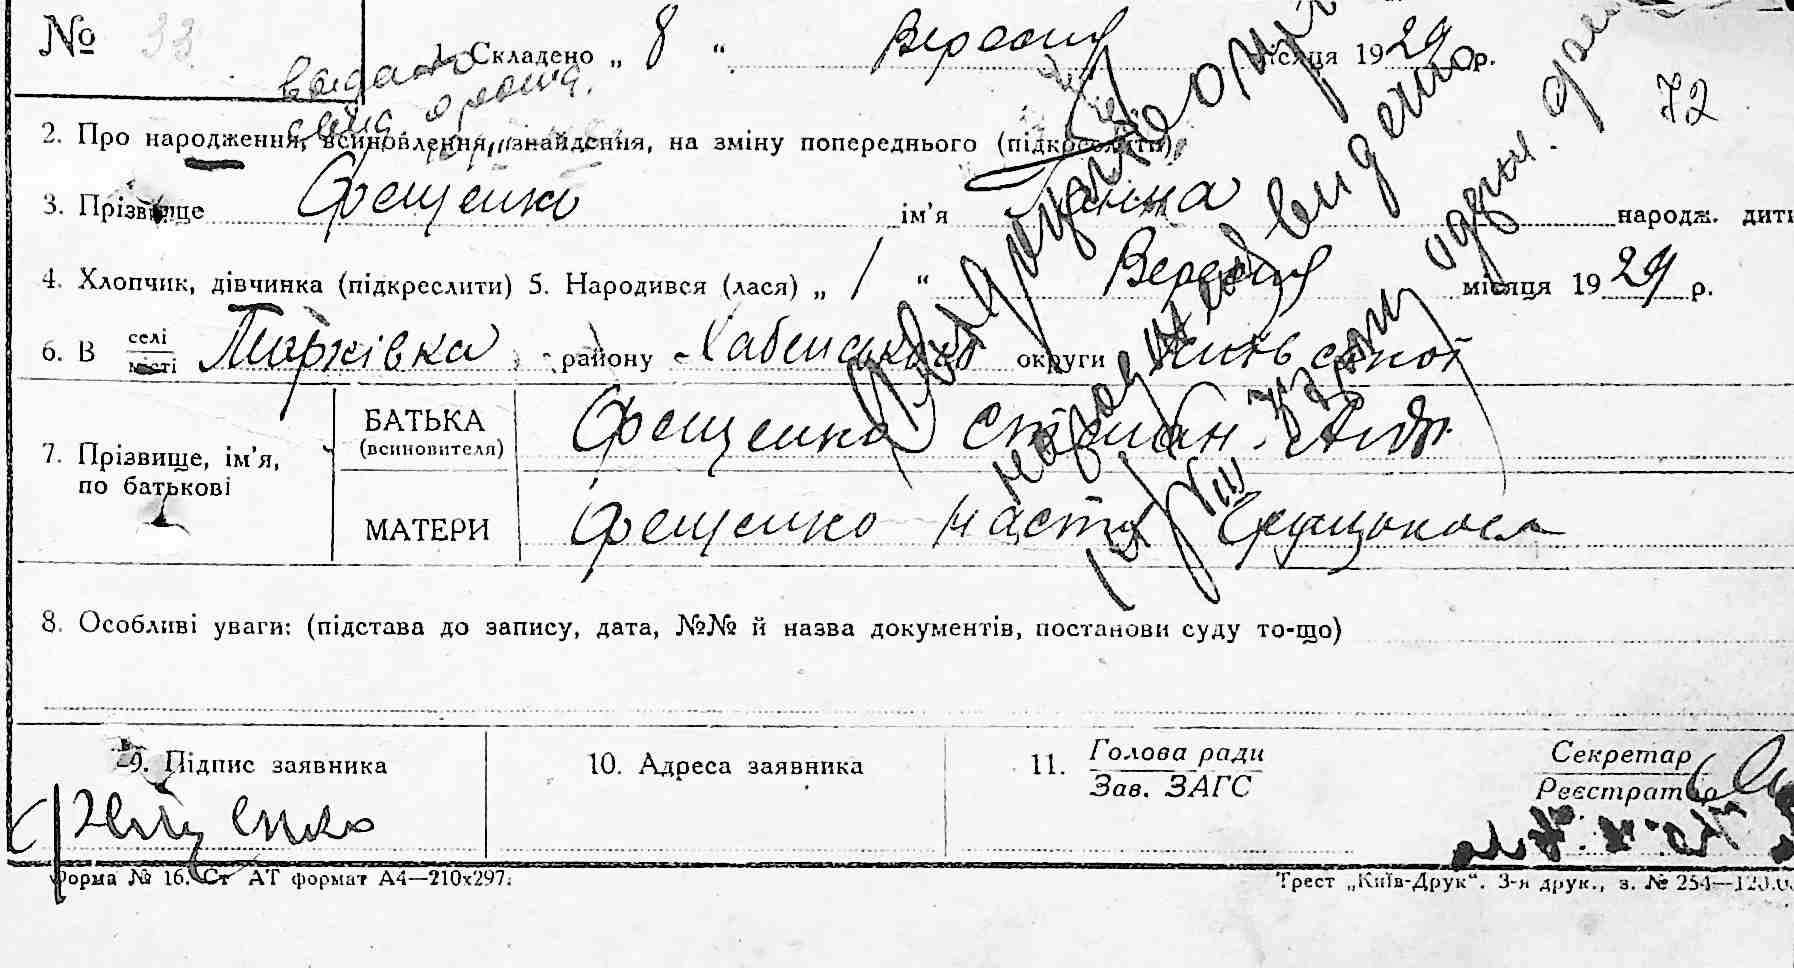 № 33
1. Складено „ 8 “ Вересня місяця 1929 р.
видано
72
2. Про народження, всиновлення, знайдення, на зміну попереднього (підкреслити)
3. Прізвище Фещенко ім'я Ганна народж. дити
4. Хлопчик, дівчинка (підкреслити) 5. Народився (лася) „ 1 “ Вересня місяця 1929 р.
6. В селі місті Марківка району Хабенського округи
7. Прізвище, ім'я, по батькові
БАТЬКА (всиновителя) Фещенко Степан
МАТЕРИ Фещенко Настя Грицькова
народження видано
8. Особливі уваги: (підстава до запису, дата, №№ й назва документів, постанови суду то-що)
9. Підпис заявника
10. Адреса заявника
11. Голова ради
Зав. ЗАГС
Секретар
Реєстратор
Фещенко
Форма № 16. Ст АТ формат А4—210х297.
Трест „Київ-Друк“. 3-я друк., з. № 254—120.0